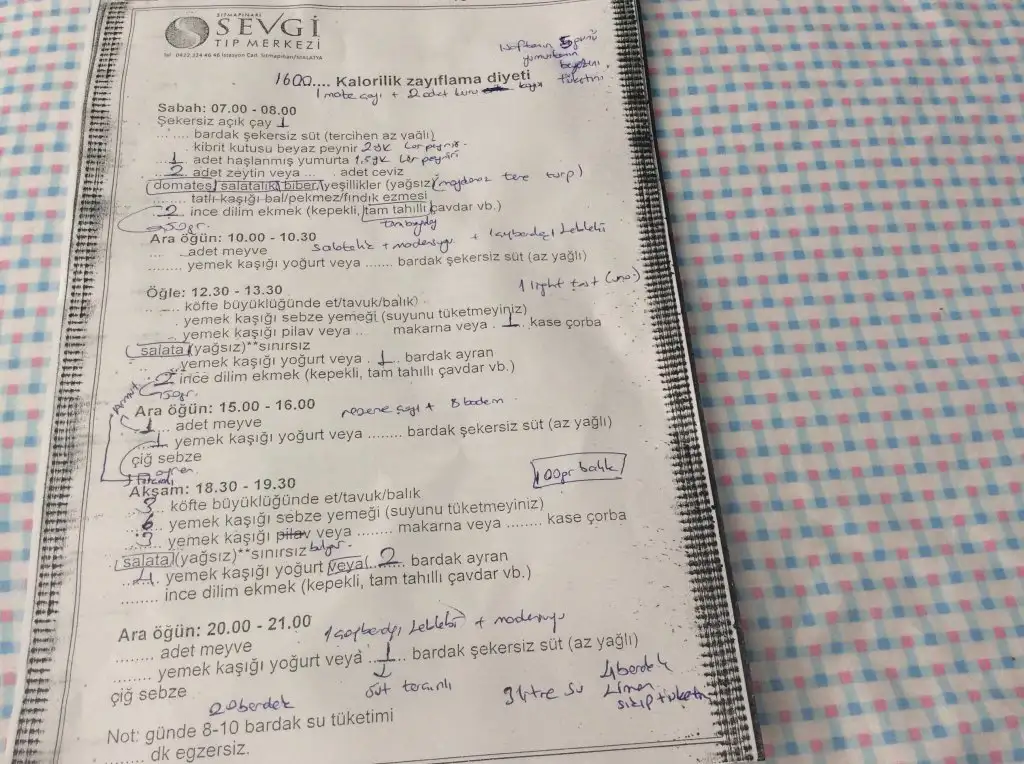 SITMAPINARI
SEVGİ
TIP MERKEZİ
Tel: 0422 324 46 46 İstasyon Cad. Sıtmapınarı/MALATYA
Haftanın 5 günü
yumurtanın
beyazını
tüketin
1600.... Kalorilik zayıflama diyeti
1 mate çayı + 2 adet kuru kayısı
Sabah: 07.00 - 08.00
Şekersiz açık çay 1
........ bardak şekersiz süt (tercihen az yağlı)
........ kibrit kutusu beyaz peynir 2 yk Lor peynir
1 adet haşlanmış yumurta 1,5 yk Lor peyniri
2 adet zeytin veya .... adet ceviz
domates, salatalık, biber, yeşillikler (yağsız) (maydanoz tere turp)
........ tatlı kaşığı bal/pekmez/fındık ezmesi
2 ince dilim ekmek (kepekli, tam tahıllı çavdar vb.)
50gr. tam buğday
Ara öğün: 10.00 - 10.30
salatalık + madensuyu + 1 çaybardağı Leblebi
........ adet meyve
........ yemek kaşığı yoğurt veya ....... bardak şekersiz süt (az yağlı)
Öğle: 12.30 - 13.30
1 light tost (uno)
.... köfte büyüklüğünde et/tavuk/balık
.... yemek kaşığı sebze yemeği (suyunu tüketmeyiniz)
.... yemek kaşığı pilav veya .... makarna veya . 1 .. kase çorba
salata (yağsız)**sınırsız
.... yemek kaşığı yoğurt veya . 1 .. bardak ayran
2 ince dilim ekmek (kepekli, tam tahıllı çavdar vb.)
50gr.
Armut
Ara öğün: 15.00 - 16.00
rezene çayı + 8 badem
1 adet meyve
1 yemek kaşığı yoğurt veya ........ bardak şekersiz süt (az yağlı)
çiğ sebze
ayran
tarcınlı
100gr balık
Akşam: 18.30 - 19.30
3 köfte büyüklüğünde et/tavuk/balık
6 yemek kaşığı sebze yemeği (suyunu tüketmeyiniz)
3 yemek kaşığı pilav veya ........ makarna veya ........ kase çorba
salata (yağsız)**sınırsız bulgur
4 yemek kaşığı yoğurt veya 2 bardak ayran
........ ince dilim ekmek (kepekli, tam tahıllı çavdar vb.)
Ara öğün: 20.00 - 21.00
1 çaybardağı Leblebi + madensuyu
........ adet meyve
........ yemek kaşığı yoğurt veya ... 1 ... bardak şekersiz süt (az yağlı)
çiğ sebze
süt tarcınlı
3 litre su
4 bardak
Limon
sıkıp tüketin
20 bardak
Not: günde 8-10 bardak su tüketimi
........ dk egzersiz.